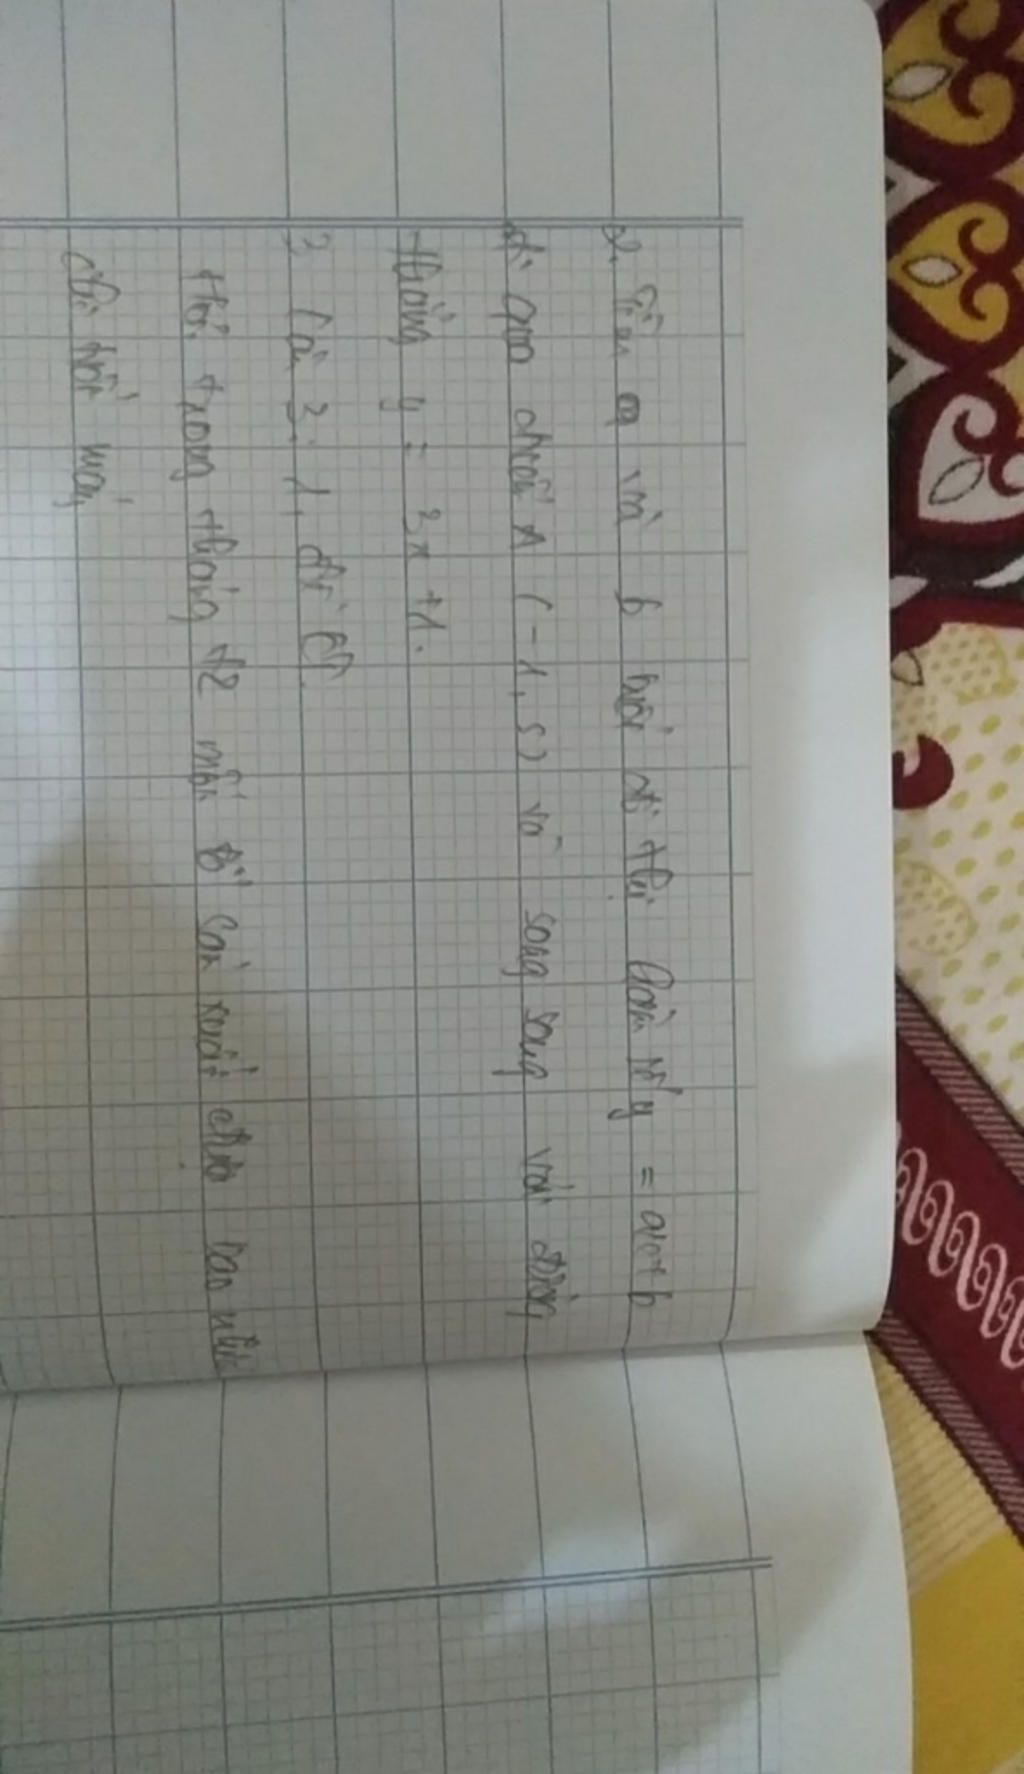 2. Tìm a và b biết đồ thị hàm số y = ax + b
đi qua điểm A (-1, 5) và song song với đường
thẳng y = 3x +1.
3 Câu 3: 1,
Hỏi trong tháng 12 mỗi tổ sản xuất được bao nhiêu
chi tiết máy